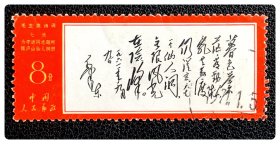 毛主席诗词
七绝
为李进同志题所摄
庐山仙人洞照
8分
中国
人民邮政
暮色苍茫
看劲松
乱云飞渡
仍从容
天生一个
仙人洞
无限风光
在险峰